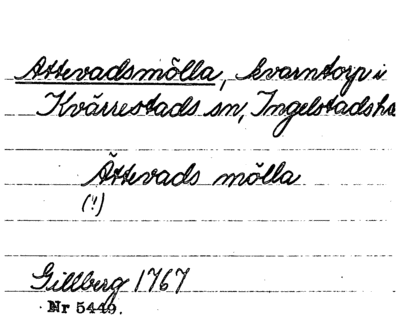 Attevadsmölla, kvarntorp i
Kvärrestads sn, Ingelstads hd
Ättevads mölla
(!)
Gillberg 1767
Nr 5449.